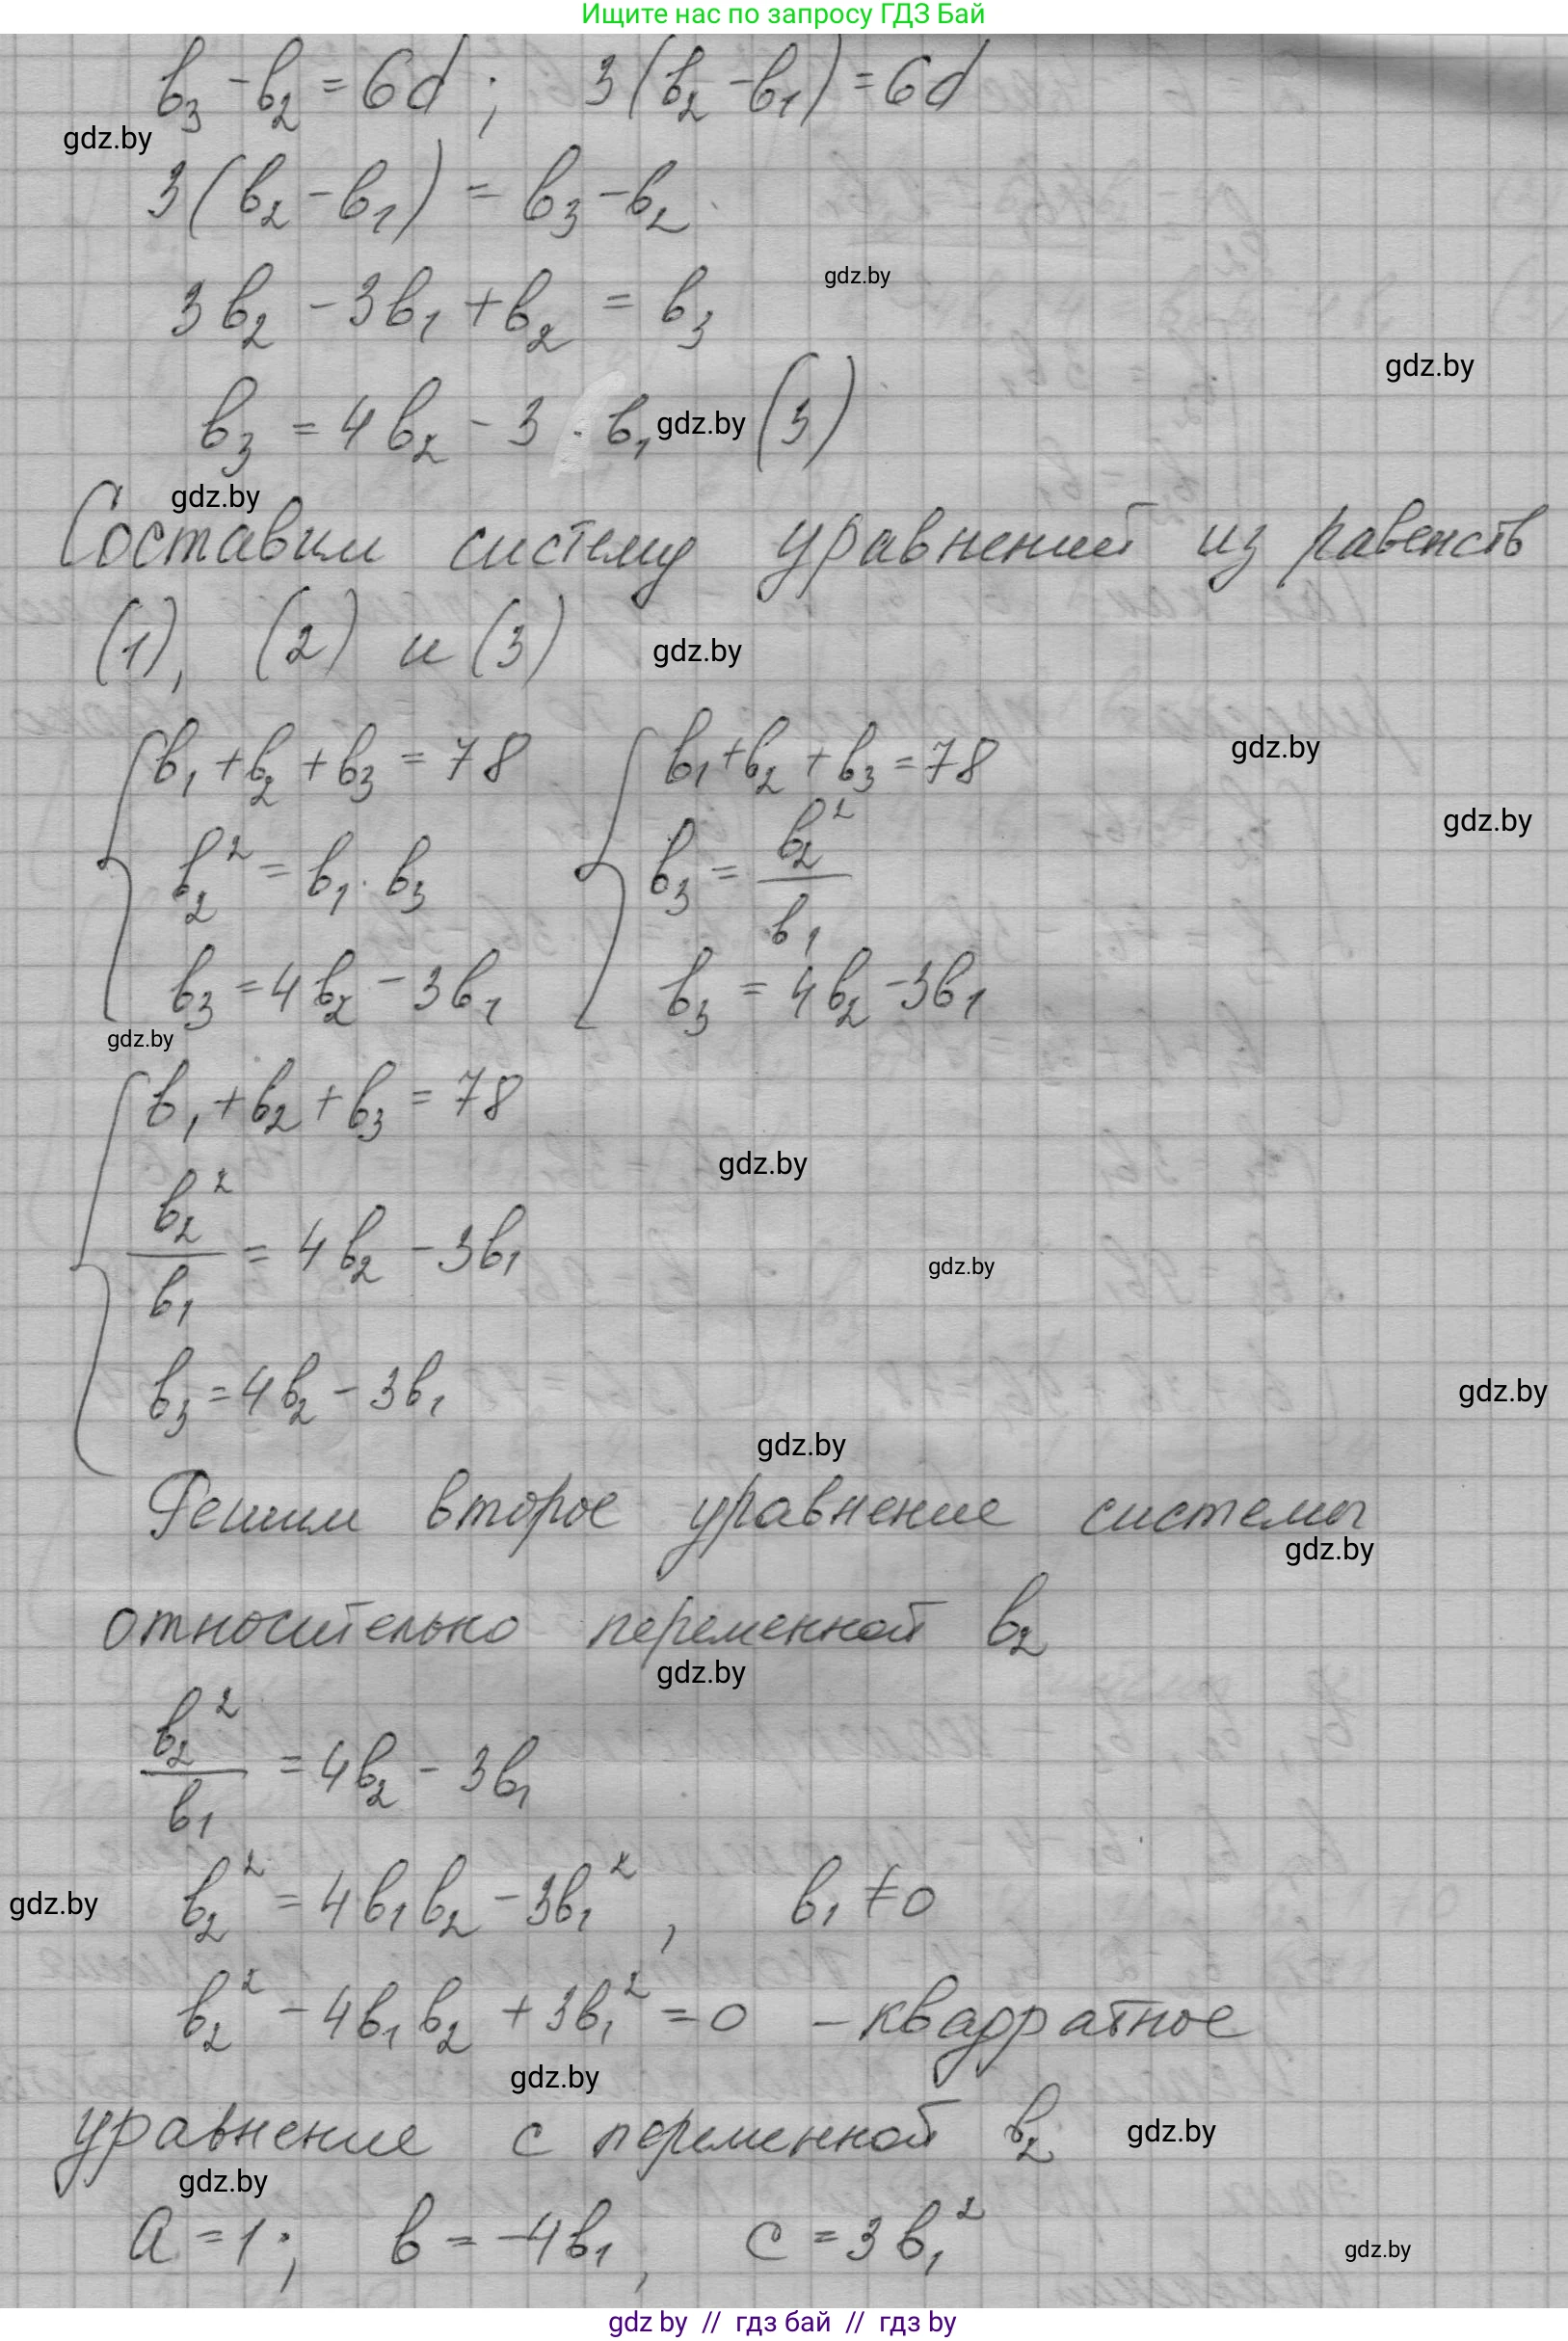 Ищите нас по запросу ГДЗ Бай
b₃ - b₂ = 6d ; 3(b₂ - b₁) = 6d
gdz.by
3(b₂ - b₁) = b₃ - b₂
3b₂ - 3b₁ + b₂ = b₃
gdz.by
gdz.by
b₃ = 4b₂ - 3 · b₁ (3)
gdz.by
gdz.by
Составим систему уравнений из равенств
(1), (2) и (3)
gdz.by
b₁ + b₂ + b₃ = 78 b₁ + b₂ + b₃ = 78
gdz.by
gdz.by
b₂² = b₁ · b₃ b₃ = b₂²/b₁
b₃ = 4b₂ - 3b₁ b₃ = 4b₂ - 3b₁
gdz.by
b₁ + b₂ + b₃ = 78
gdz.by
b₂²/b₁ = 4b₂ - 3b₁
gdz.by
b₃ = 4b₂ - 3b₁
gdz.by
gdz.by
Решим второе уравнение системы
gdz.by
относительно переменной b₂
gdz.by
b₂²/b₁ = 4b₂ - 3b₁
gdz.by
b₂² = 4b₁b₂ - 3b₁² , b₁ ≠ 0
b₂² - 4b₁b₂ + 3b₁² = 0 - квадратное
gdz.by
уравнение с переменной b₂
gdz.by
gdz.by
a = 1 ; b = -4b₁ , c = 3b₁²
gdz.by
gdz by // гдз бай // гдз by